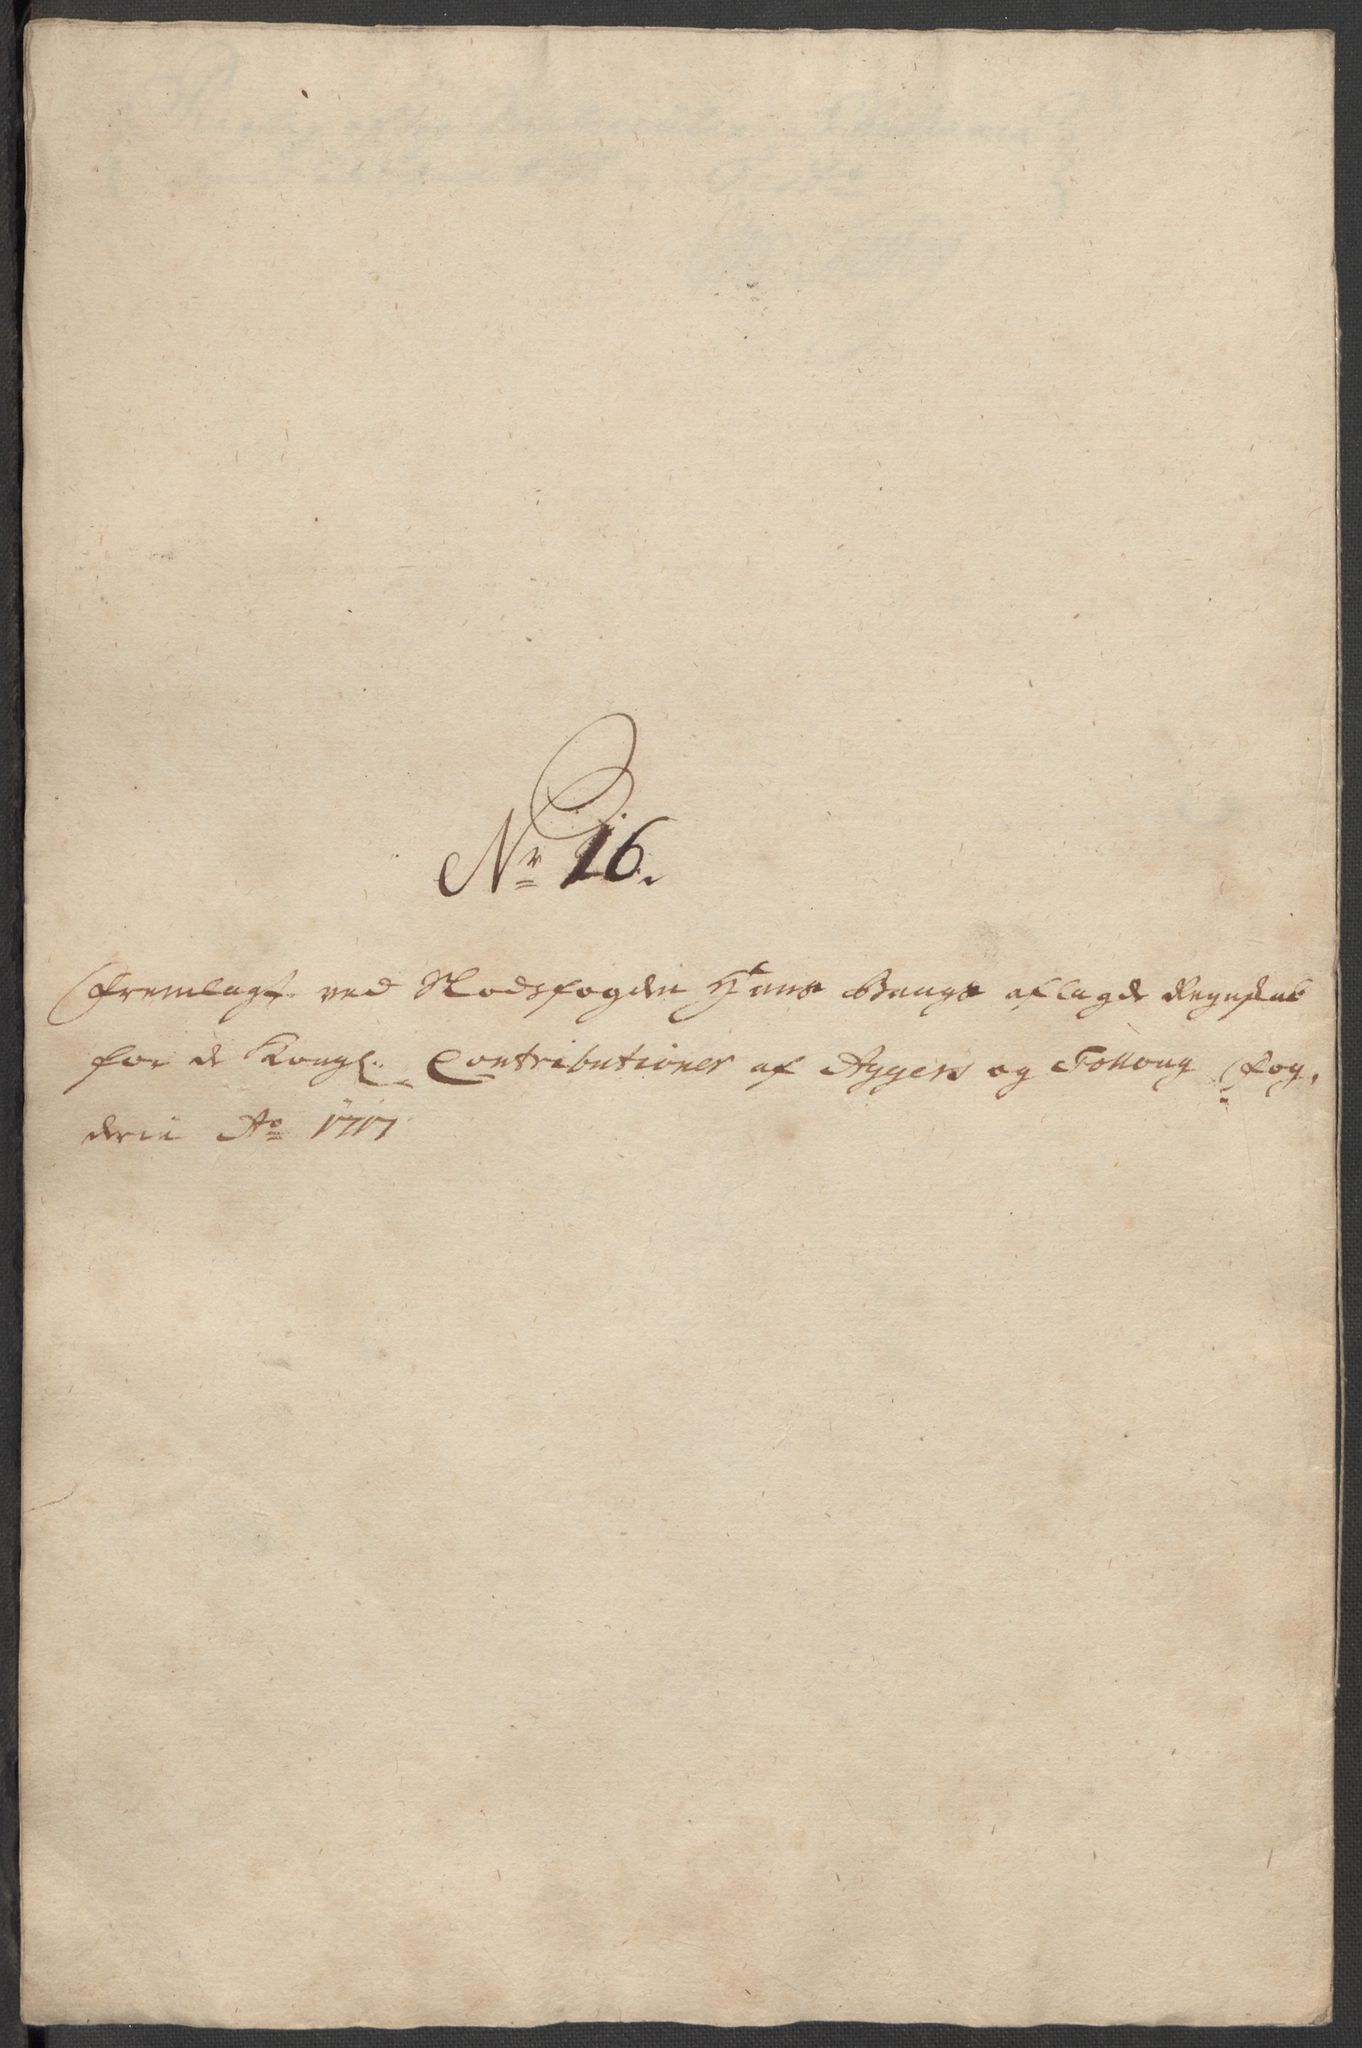 Nr 16.
Fremlagt ved Slodsfogden Hans Bangs aflagde Regnskab
for de Kongl. Contributioner af Aggers og Folloug Fog,
derie Ao 1717